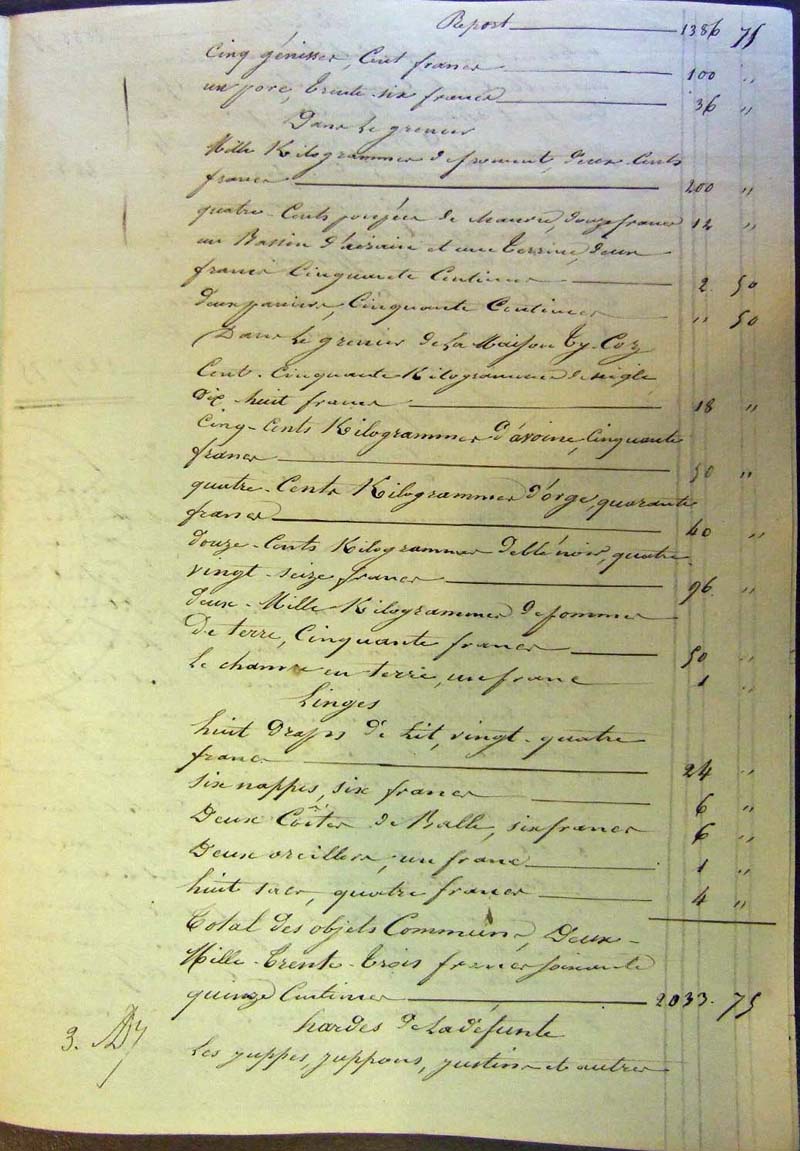 Report 1386 75
Cinq génisses, Cent francs 100 "
un porc, trente-six francs 36 "
Dans le grenier
Mille Kilogrammes de froment, deux-Cents
francs 200 "
quatre-Cents poupées de chanvre, douze francs 12 "
un Bassin d'airain et une terrine, deux
francs Cinquante Centimes 2. 50
deux paniers, Cinquante Centimes " 50
Dans le grenier de la Maison Ty-Coz
Cent-Cinquante Kilogrammes de seigle,
dix-huit francs 18 "
Cinq-Cents Kilogrammes d'avoine, Cinquante
francs 50 "
quatre-Cents Kilogrammes d'orge, quarante
francs 40 "
douze-Cents Kilogrammes de blé noir, quatre-
vingt-seize francs 96 "
deux-Mille Kilogrammes de pommes
de terre, Cinquante francs 50 "
le chanvre en terre, un franc 1 "
Linges
huit draps de lit, vingt-quatre
francs 24 "
six nappes, six francs 6 "
Deux Coëtes de Balle, six francs 6 "
Deux oreillers, un franc 1 "
huit sacs, quatre francs 4 "
Total des objets Communs, Deux-
Mille-trente-trois francs soixante
quinze Centimes 2033. 75
hardes de la défunte
3.
Les juppes, juppons, justins et autres